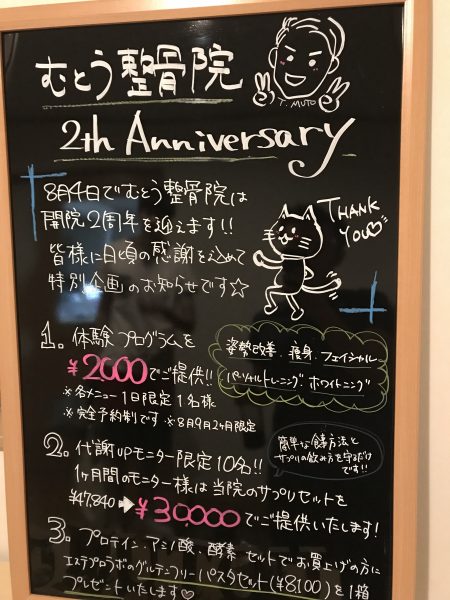 むとう整骨院
T. MUTO
2th Anniversary
8月4日でむとう整骨院は
開院2周年を迎えます!!
皆様に日頃の感謝を込めて
特別企画のお知らせです☆
THANK
YOU♡
1. 体験プログラムを
¥2,000でご提供!!
※各メニュー1日限定1名様
※完全予約制です ※8月9月2ヶ月限定
姿勢改善、痩身、フェイシャル、
パーソナルトレーニング ホワイトニング
2. 代謝upモニター限定10名!!
1ヶ月間のモニター様は当院のサプリセットを
¥47,840➡¥30,000でご提供いたします!
簡単な食事方法と
サプリの飲み方を守るだけ
です!!
3. プロテイン、アミノ酸、酵素 セットでお買上げの方に
エステプロラボのグルテンフリーパスタセット(¥8,100)を1箱
プレゼントいたします♡